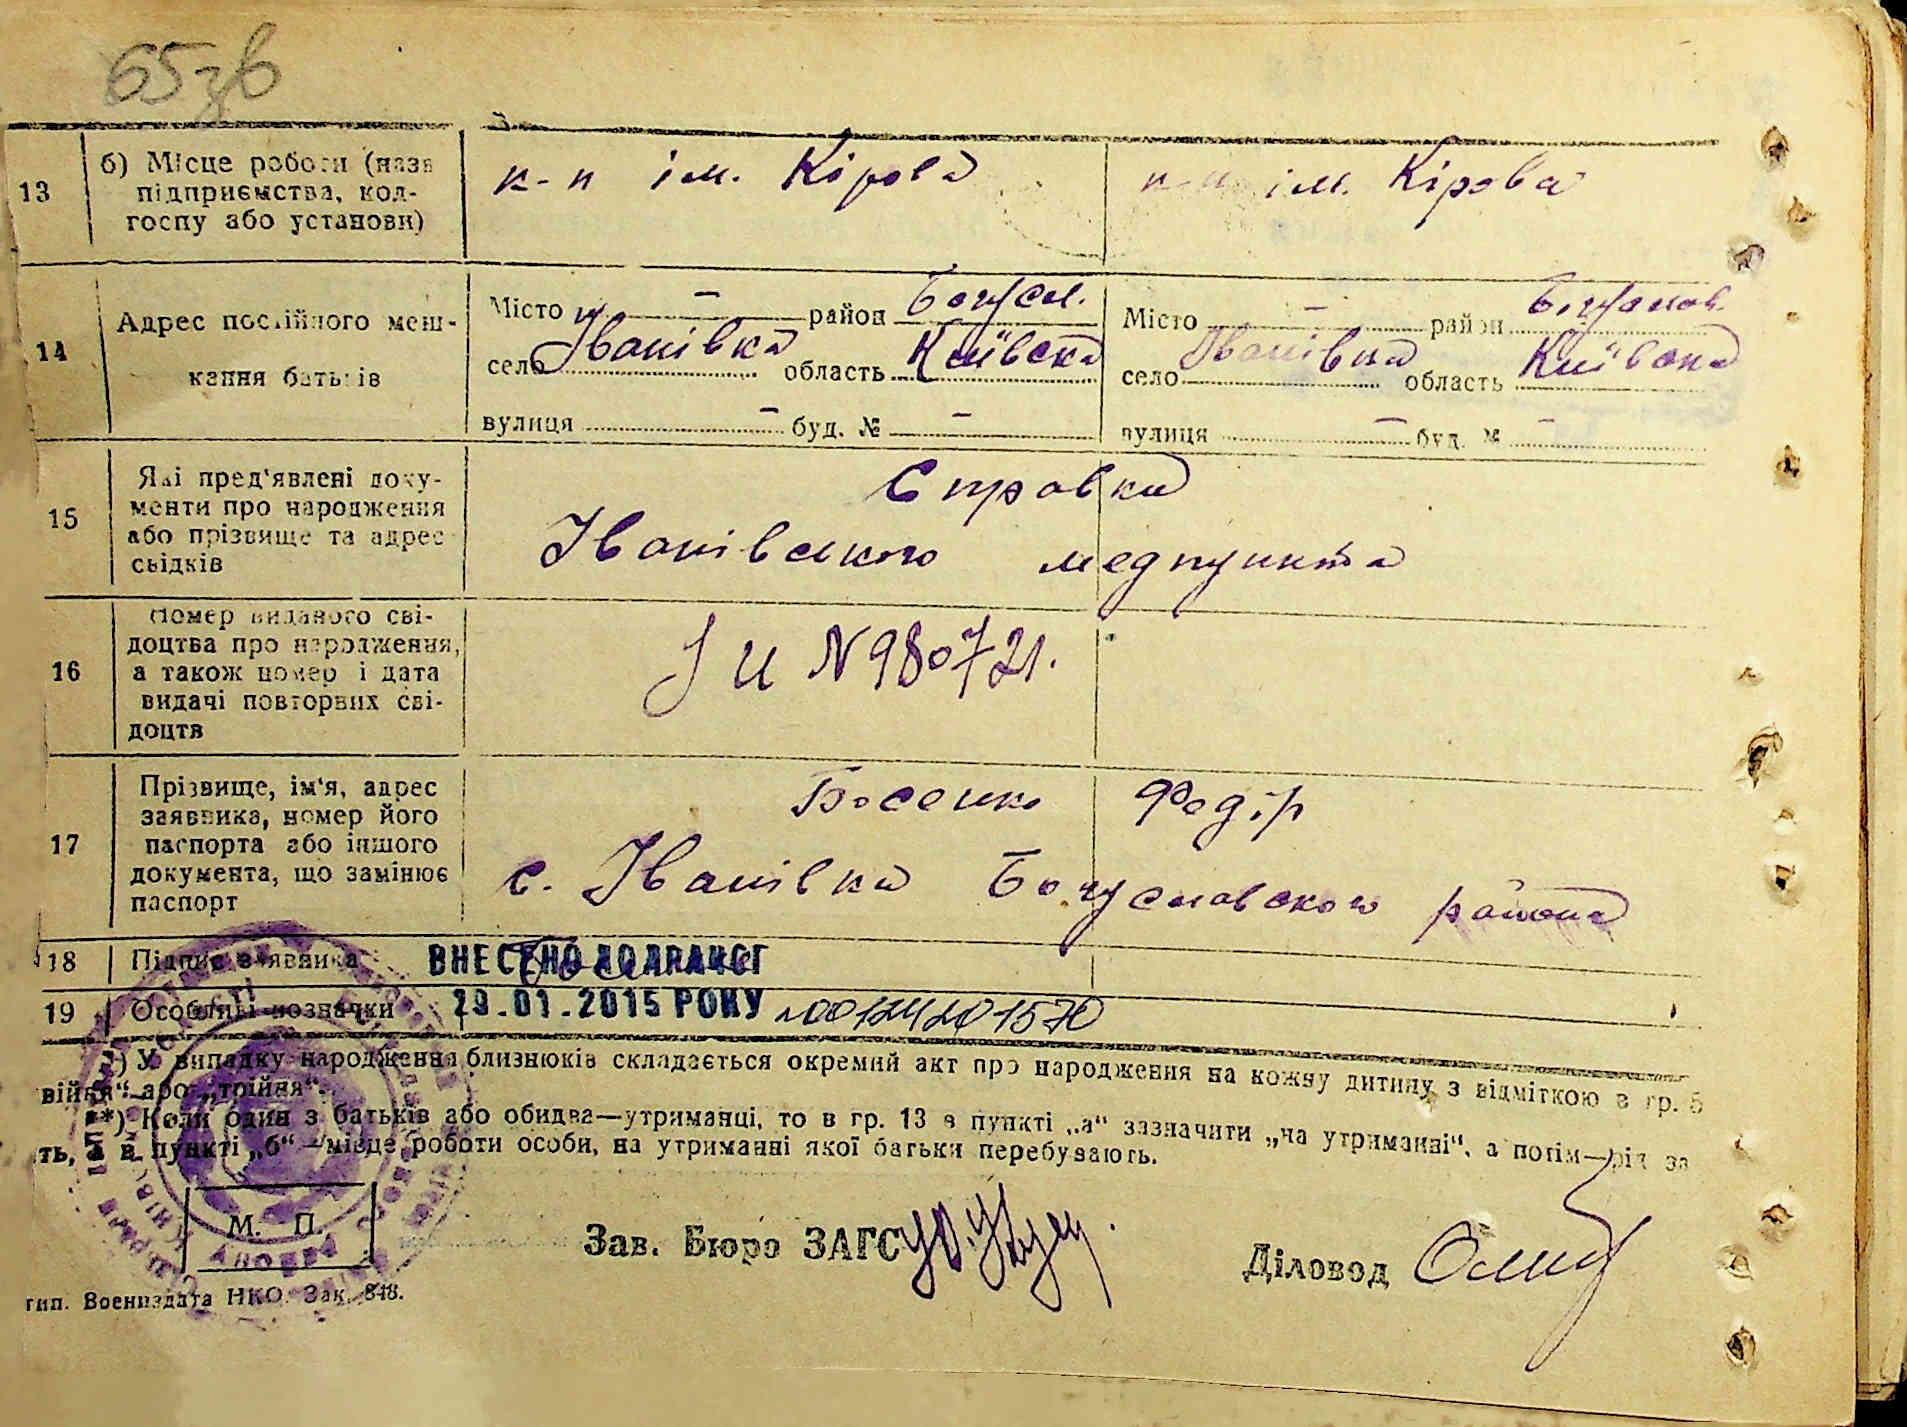 65зв
13
б) Місце роботи (назв
підприємства, кол-
госпу або установи)
к-п ім. Кірова
к-п ім. Кірова
14
Адрес постійного меш-
кання батьків
Місто — район Богусл.
село Іванівка область Київська
вулиця — буд. № —
Місто — район Богуслав.
село Іванівка область Київська
вулиця — буд. № —
15
Які пред'явлені доку-
менти про народження
або прізвище та адрес
свідків
Справка
Іванівського медпункта
16
Номер виданого сві-
доцтва про народження,
а також номер і дата
видачі повторних сві-
доцтв
І И N 980721.
17
Прізвище, ім'я, адрес
заявника, номер його
паспорта або іншого
документа, що замінює
паспорт
Босенко Федір
с. Іванівка Богуславского района
18
Підпис заявника
ВНЕСЕНО ДО ДРАЦСГ
19
Особливі позначки
29.01.2015 РОКУ №00124201570
*) У випадку народження близнюків складається окремий акт про народження на кожну дитину з відміткою в гр. 5
війня“ або „трійня“.
**) Коли один з батьків або обидва—утриманці, то в гр. 13 в пункті „а“ зазначити „на утриманні“, а потім—рід за
ть, а в пункті „б“ —місце роботи особи, на утриманні якої батьки перебувають.
М. П.
Зав. Бюро ЗАГС
Діловод
тип. Воениздата НКО. Зак. 848.